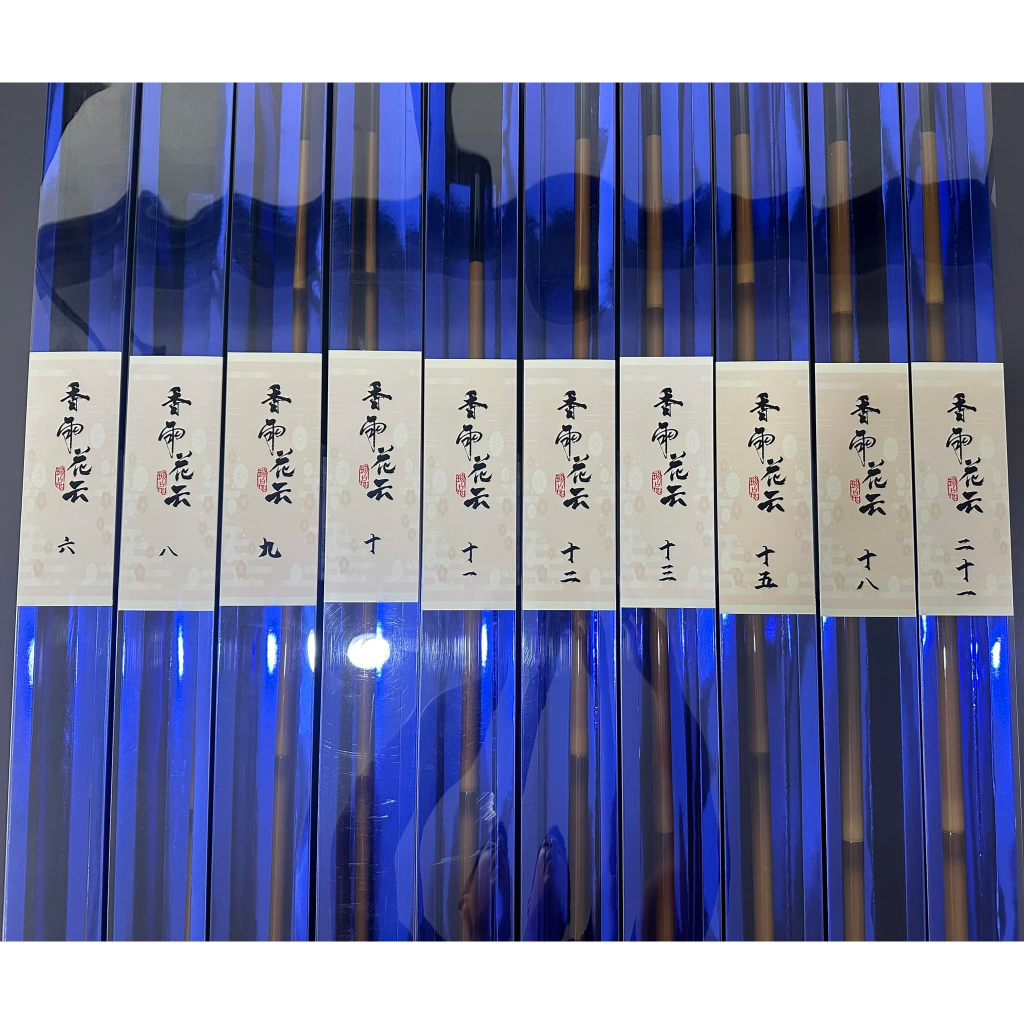 香雨花云
六
香雨花云
八
香雨花云
九
香雨花云
十
香雨花云
十一
香雨花云
十二
香雨花云
十三
香雨花云
十五
香雨花云
十八
香雨花云
二十一